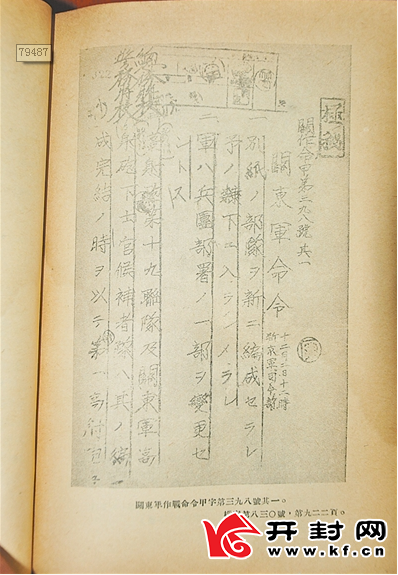 79487
極秘
關作命甲第三九八號其一
關東軍命令
十二月二日十二時
新京軍司令部
一 別紙ノ部隊ヲ新ニ編成セラレ
予ノ隷下ニ入ラシメラル
二 軍ハ兵團部署ノ一部ヲ變更セ
ントス
第十九聯隊及關東軍高
射砲下士官候補者隊ハ其ノ編
成完結ノ時ヲ以テ第一高射砲
關東軍作戰命令甲字第三九八號其一。
第八三〇號,第九二二頁。
开封网
www.kf.cn